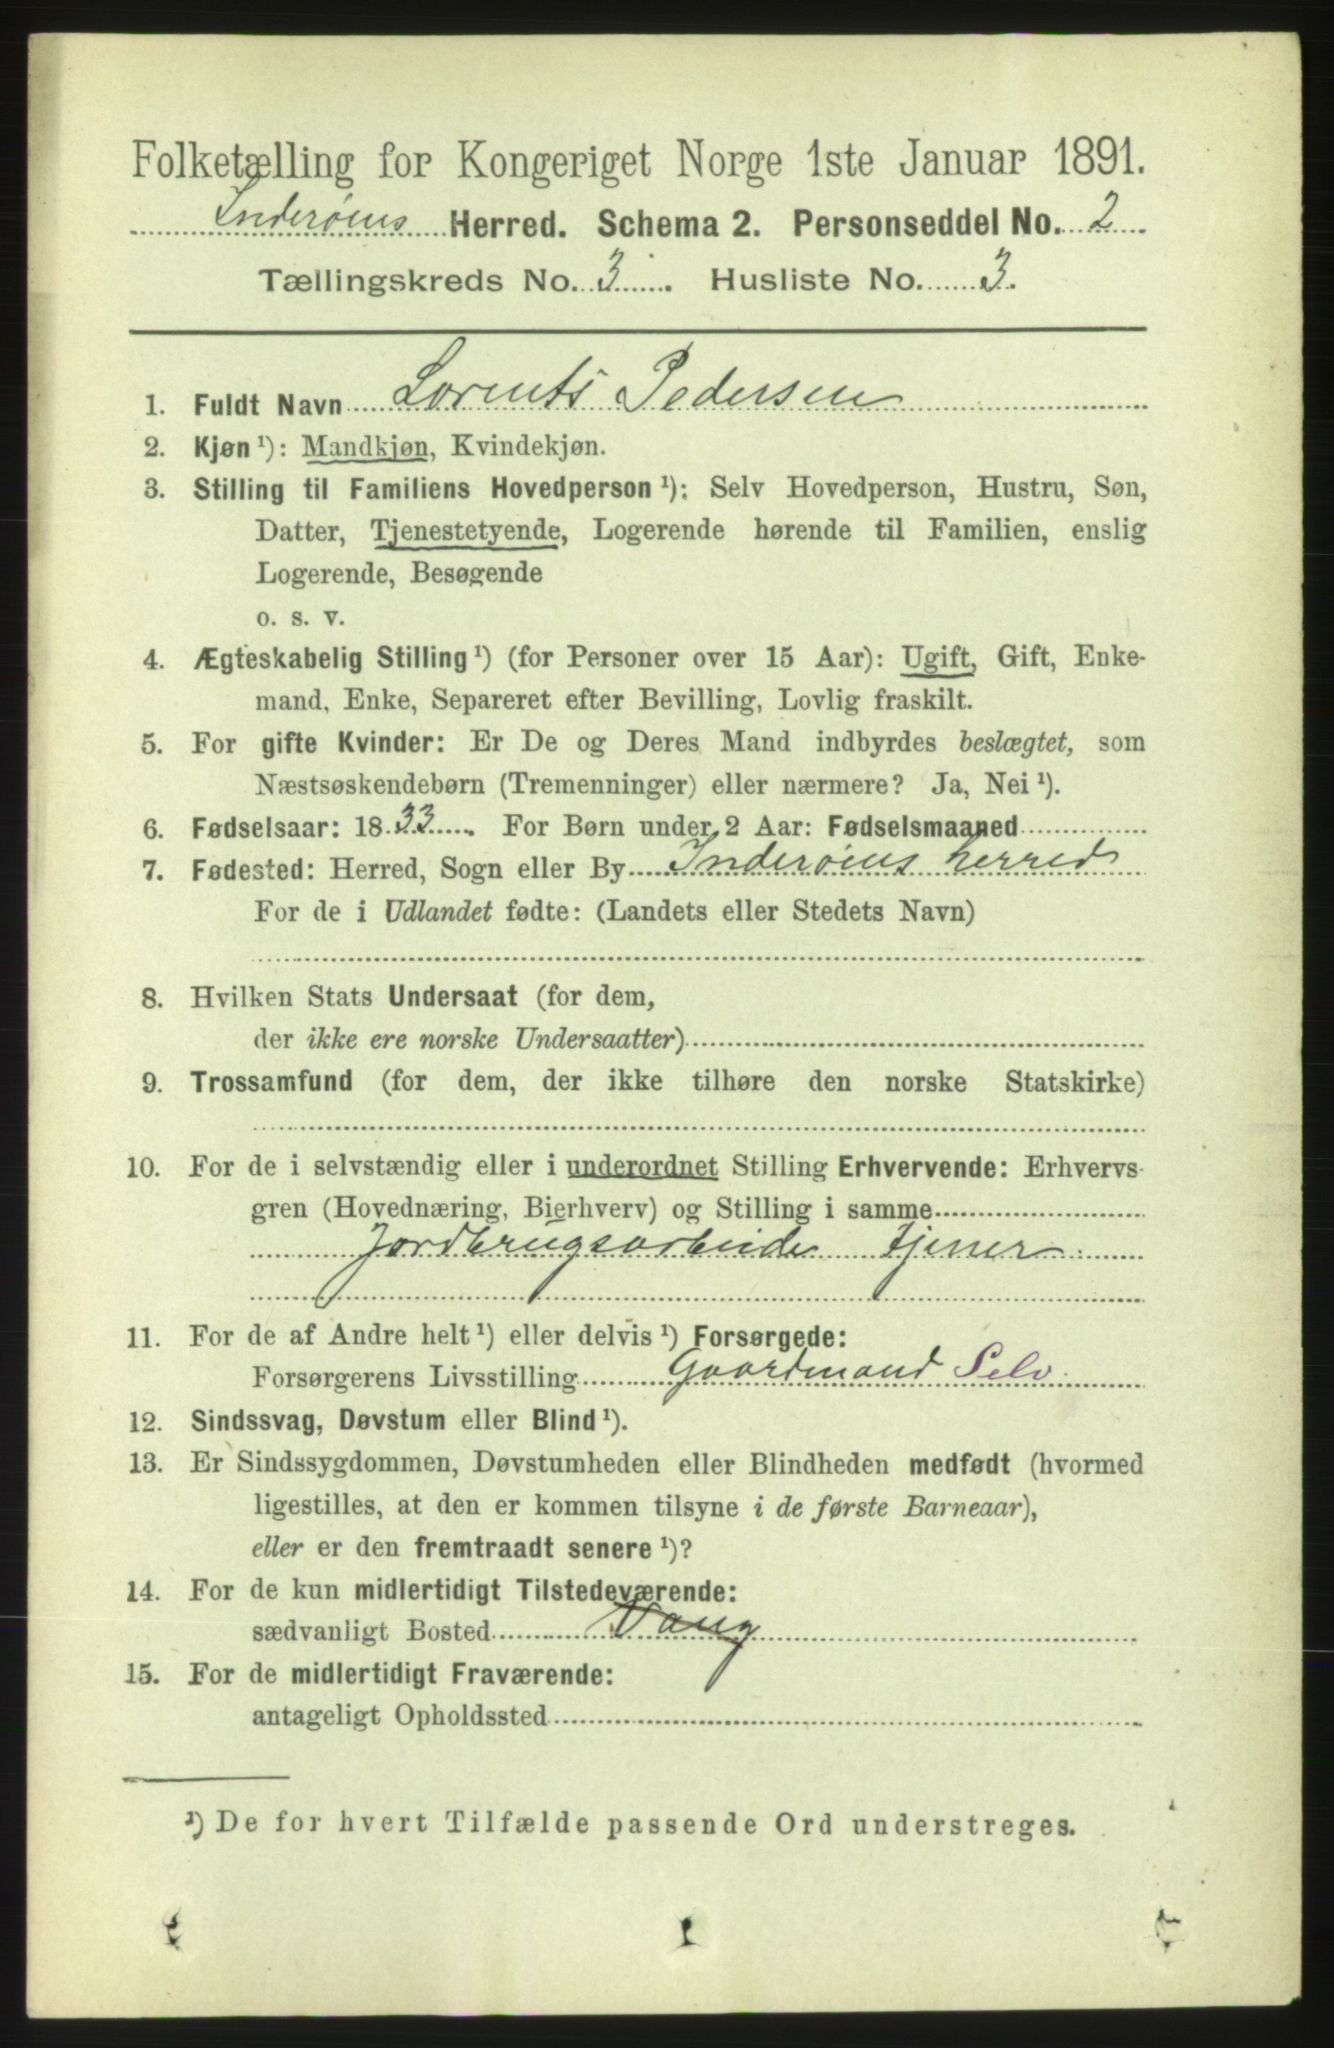 Folketælling for Kongeriget Norge 1ste Januar 1891.
Inderøens Herred. Schema 2. Personseddel No. 2
Tællingskreds No. 3. Husliste No. 3.
1. Fuldt Navn Lorents Pedersen
2. Kjøn ¹): Mandkjøn, Kvindekjøn.
3. Stilling til Familiens Hovedperson ¹): Selv Hovedperson, Hustru, Søn,
Datter, Tjenestetyende, Logerende hørende til Familien, enslig
Logerende, Besøgende
o. s. v.
4. Ægteskabelig Stilling ¹) (for Personer over 15 Aar): Ugift, Gift, Enke-
mand, Enke, Separeret efter Bevilling, Lovlig fraskilt.
5. For gifte Kvinder: Er De og Deres Mand indbyrdes beslægtet, som
Næstsøskendebørn (Tremenninger) eller nærmere? Ja, Nei ¹).
6. Fødselsaar: 1833. For Børn under 2 Aar: Fødselsmaaned
7. Fødested: Herred, Sogn eller By Inderøens herred
For de i Udlandet fødte: (Landets eller Stedets Navn)
8. Hvilken Stats Undersaat (for dem,
der ikke ere norske Undersaatter)
9. Trossamfund (for dem, der ikke tilhøre den norske Statskirke)
10. For de i selvstændig eller i underordnet Stilling Erhvervende: Erhvervs-
gren (Hovednæring, Bierhverv) og Stilling i samme
Jordbrugsarbeide tjener
11. For de af Andre helt ¹) eller delvis ¹) Forsørgede:
Forsørgerens Livsstilling Gaardmand Selv
12. Sindssvag, Døvstum eller Blind ¹).
13. Er Sindssygdommen, Døvstumheden eller Blindheden medfødt (hvormed
ligestilles, at den er kommen tilsyne i de første Barneaar),
eller er den fremtraadt senere ¹)?
14. For de kun midlertidigt Tilstedeværende:
sædvanligt Bosted Vang
15. For de midlertidigt Fraværende:
antageligt Opholdssted
¹) De for hvert Tilfælde passende Ord understreges.